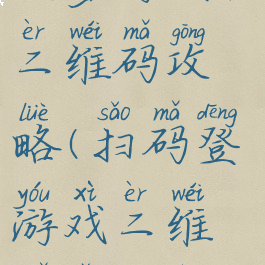 èr wéi mǎ gōng
二维码攻
lüè sǎo mǎ dēng
略(扫码登
yóu xì èr wéi
游戏二维